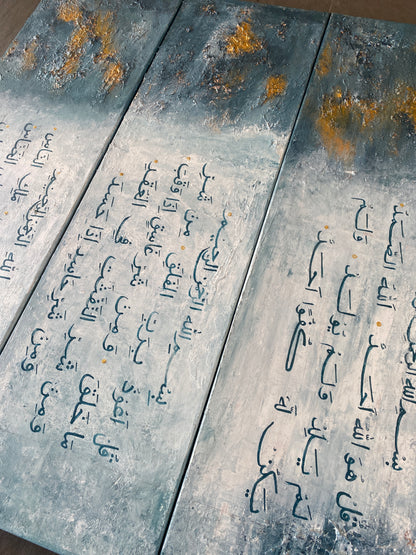 بسم الله الرحمن
قل هو الله أحد الله الصمد
لم يلد ولم يولد ولم
يكن له كفوا أحد
بسم الله الرحمن الرحيم
قل أعوذ برب الفلق من شر
ما خلق ومن شر غاسق إذا وقب
ومن شر النفثت في العقد
ومن شر حاسد إذا حسد
الله الرحمن الرحيم
ملك الناس